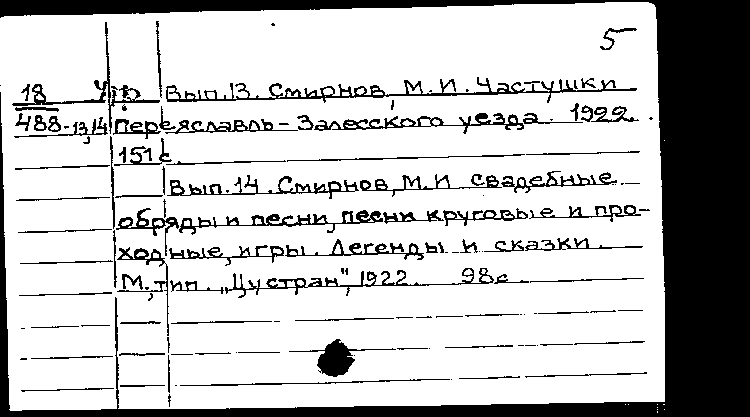 5
18 Вып. 13. Смирнов, М. И. Частушки
488-13,14 Переяславль-Залесского уезда. 1922.
151 с.
Вып. 14. Смирнов, М. И свадебные
обряды и песни, песни круговые и про-
ходные, игры. Легенды и сказки.
М., тип. „Цустран", 1922. 98 с.